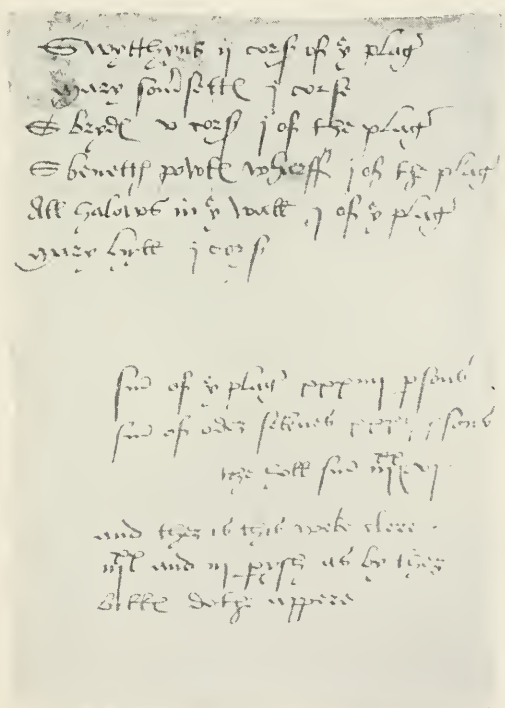 S wytthyns ij corse of yͤ plagͤ
mary som̄sette j corse
S bryde v corsͤ j of the plagͤ
S benett powls wharff j of the plagͤ
All halows in yͤ wall j of yͤ plagͤ
mary hyll j cors
sm̄ of yͤ plagͤ xxxiiij psons
sm̄ of oder sekenes xxxij psons
the holl sm̄ iijˣˣ & vj
and ther is this weke clere
and iij as by
bille dothe appere